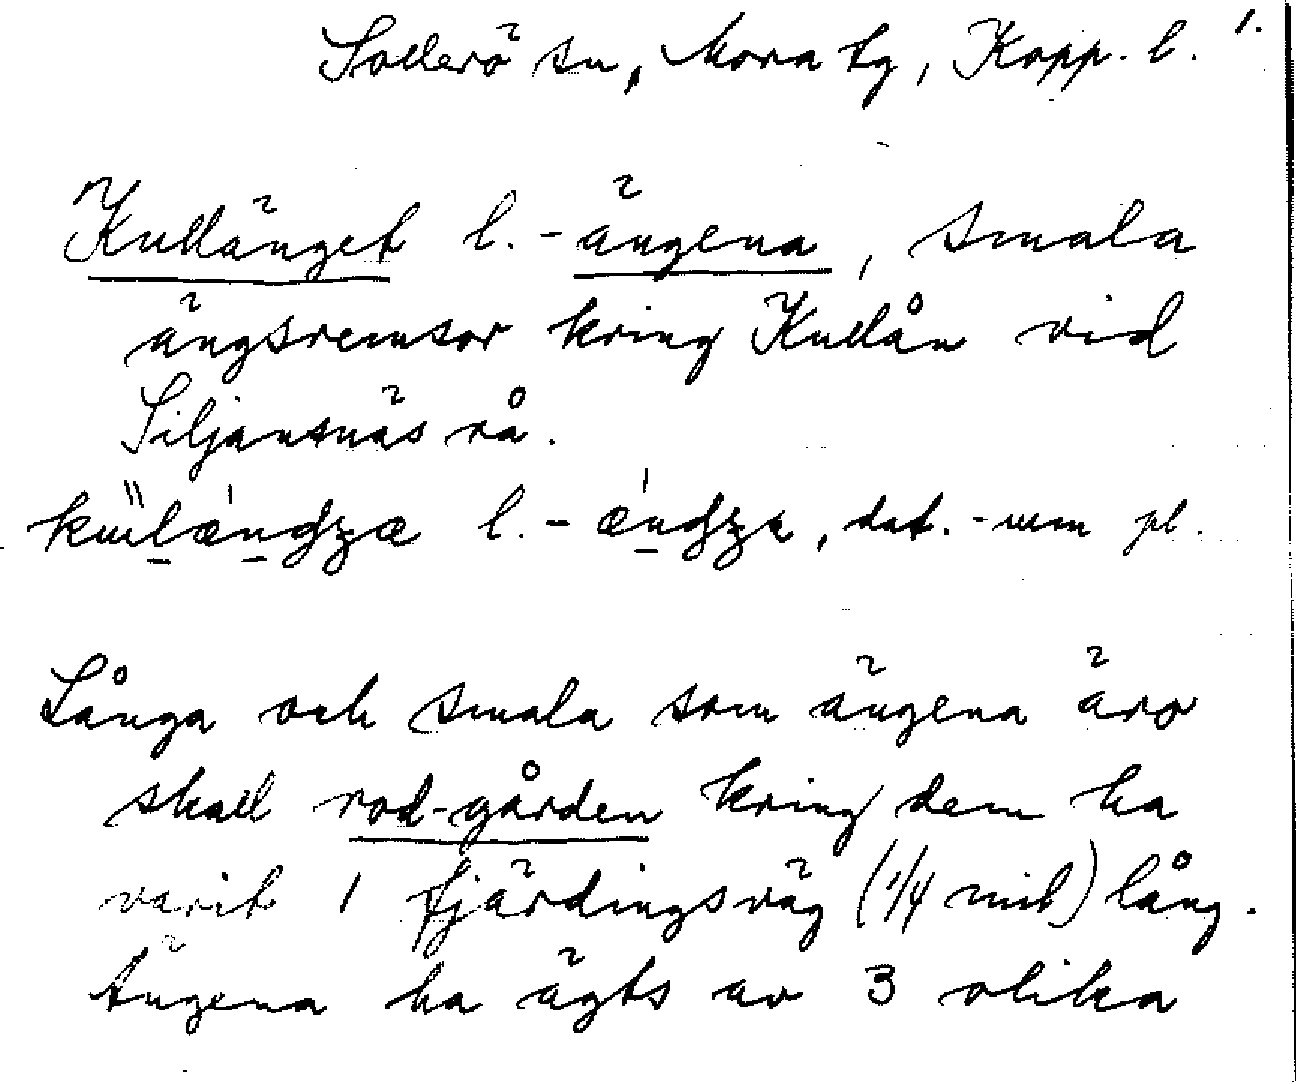 Sollerö sn, Mora tg, Kopp. l. 1.
Kullänget l. -ängena, smala
ängsremsor kring Kullån vid
Siljansnäs rå.
l. - , dat. -um pl.
Långa och smala som ängena äro
skall rod-gården kring dem ha
varit 1 fjärdingsväg (1/4 mil) lång.
Ängena ha ägts av 3 olika